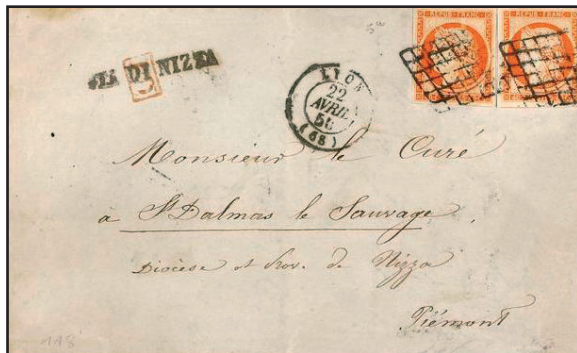 REPUB. FRANC. REPUB. FRANC.
VIA DI NIZZA
LYON
22
AVRIL
50
(68)
Monsieur le Curé
à St Dalmas le Sauvage.
Diocèse et Prov. de Nizza
Piémont
118